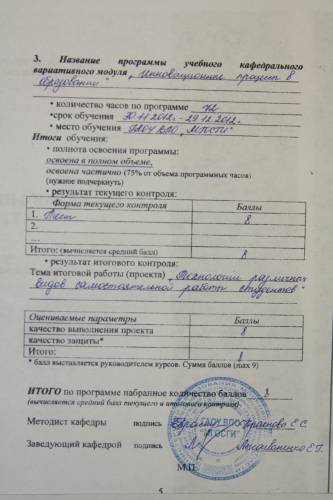 3. Название программы учебного кафедрального
вариативного модуля „Инновационные процессы в
образовании"
• количество часов по программе 72
• срок обучения 30.11.2012г. - 29.12.2012г.
• место обучения ГАОУ ВПО „МГОСГИ"
Итоги обучения:
• полнота освоения программы:
освоена в полном объеме,
освоена частично (75% от объема программных часов)
(нужное подчеркнуть)
• результат текущего контроля:
Форма текущего контроля Баллы
1. Тест 8
2.
...
Итого: (вычисляется средний балл) 8
• результат итогового контроля:
Тема итоговой работы (проекта) „Технологии различных
видов самостоятельной работы студентов"
Оцениваемые параметры Баллы
качество выполнения проекта 8
качество защиты*
Итого: 8
* балл выставляется руководителем курсов. Сумма баллов (max 9)
ИТОГО по программе набранное количество баллов 8
(вычисляется средний балл текущего и итогового контроля).
Методист кафедры подпись Е.С.
Заведующий кафедрой подпись Е.Г.
М.П.
5